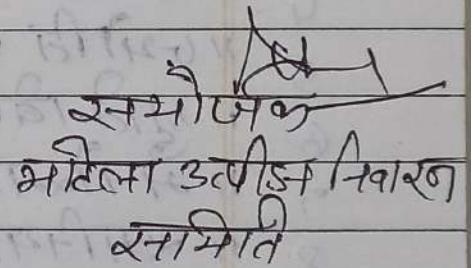 संयोजक
महिला उत्पीडन निवारन
समिति